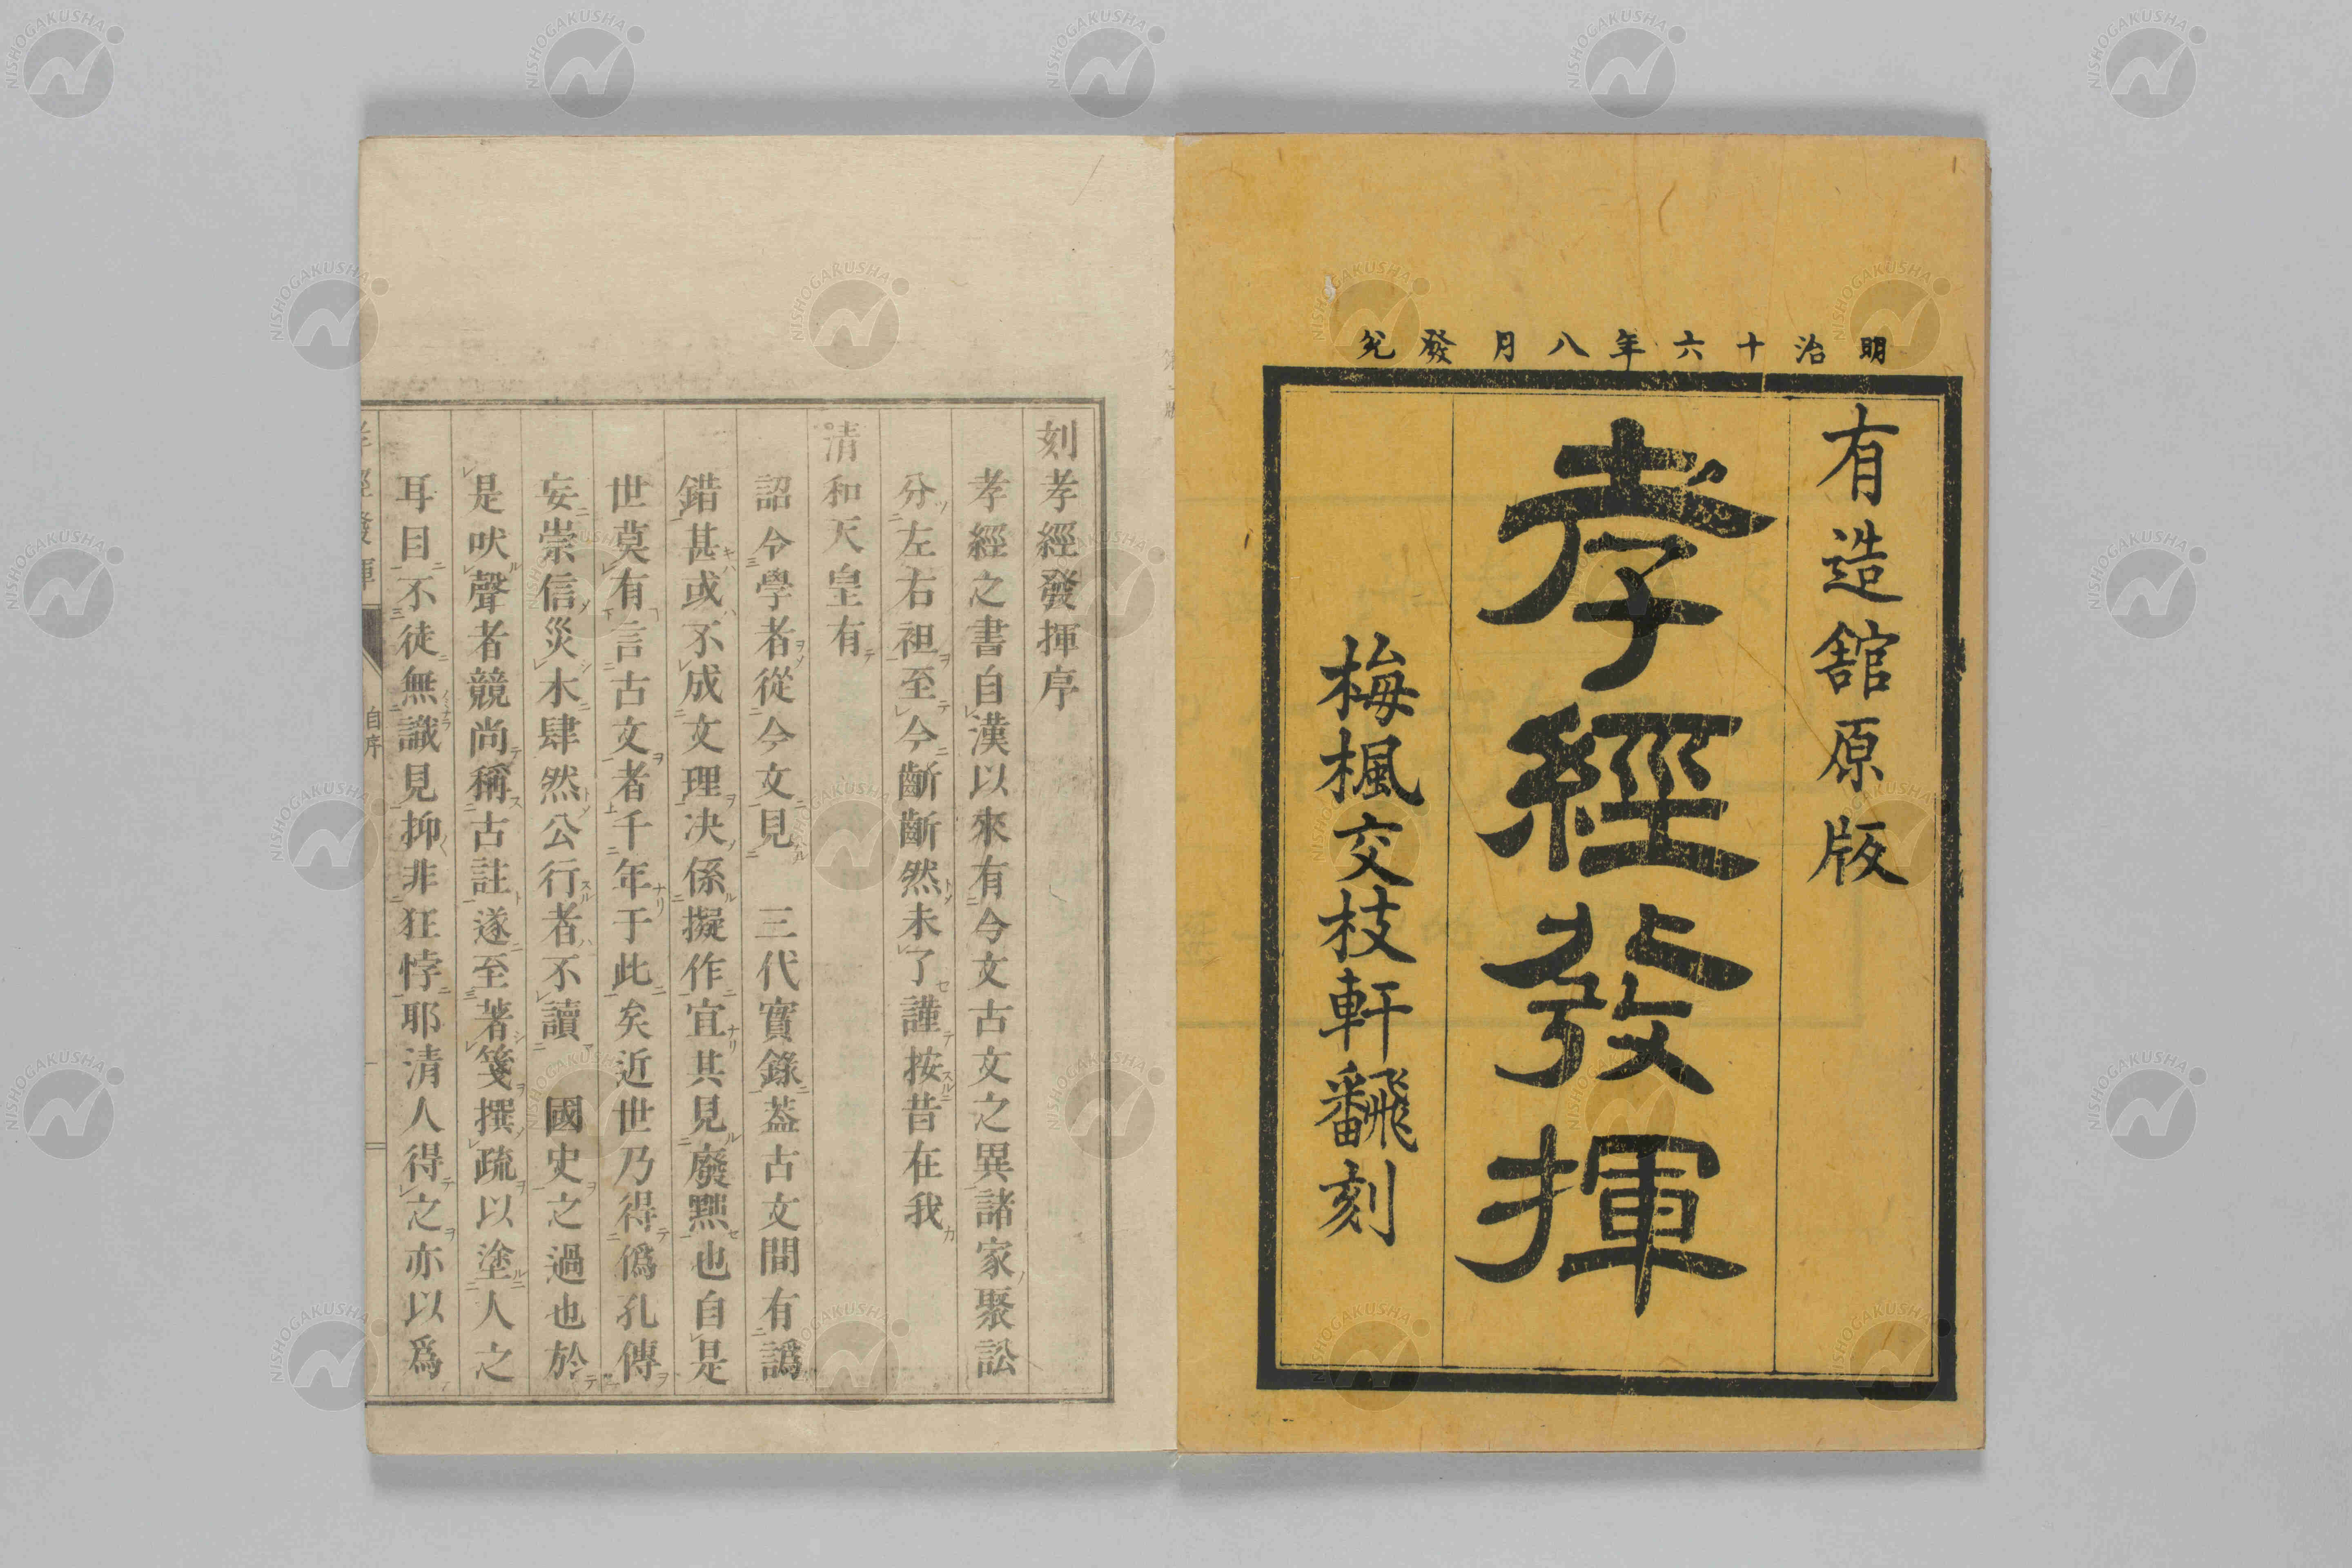 明治十六年八月發兌
有造館原版
孝經發揮
梅楓交枝軒翻刻
刻孝經發揮序
孝經之書自漢以來有今文古文之異諸家聚訟
分左右袒至今齗齗然未了謹按昔在我
清和天皇有
詔令學者從今文見 三代實錄葢古文間有譌
錯甚或不成文理决係擬作宜其見廢黜也自是
世莫有言古文者千年于此矣近世乃得僞孔傳
妄崇信災木肆然公行者不讀 國史之過也於
是吠聲者競尚稱古註遂至著箋撰疏以塗人之
耳目不徒無識見抑非狂悖耶清人得之亦以爲
孝經發揮
自序
一
NISHOGAKUSHA